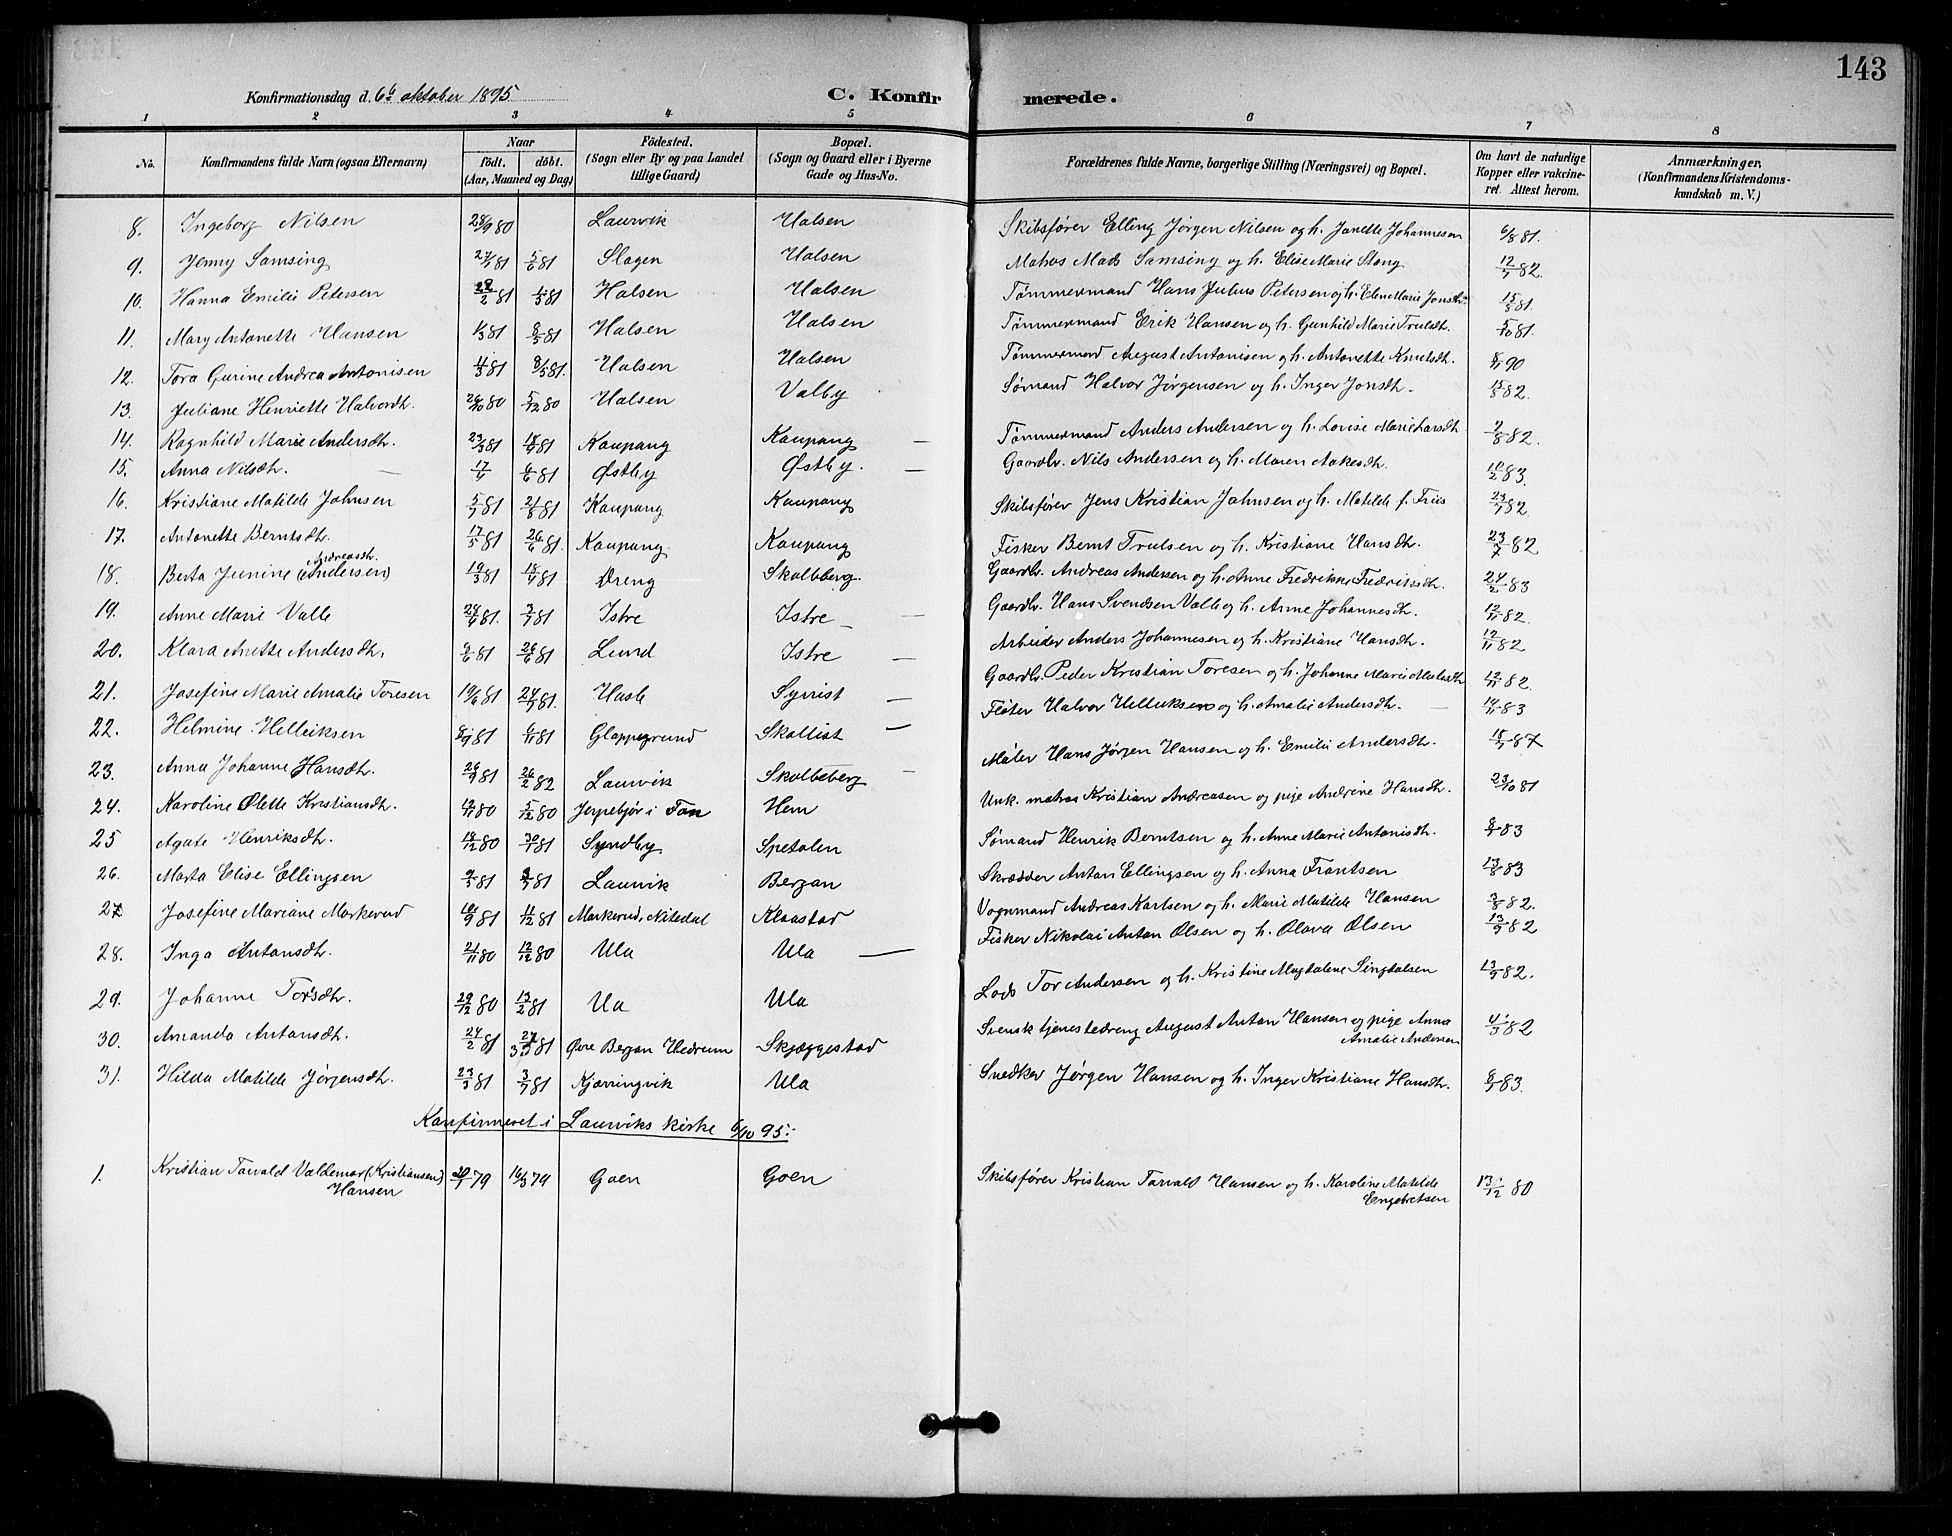 143
Konfirmationsdag d. 6te oktober 1895
C. Konfirmerede.
1 2 3 4 5 6 7 8
No. Konfirmandens fulde Navn (ogsaa Efternavn) Naar födt, döbt. (Aar, Maaned og Dag) Födested. (Sogn eller By og paa Landet tillige Gaard) Bopæl. (Sogn og Gaard eller i Byerne Gade og Hus-No. Forældrenes fulde Navne, borgerlige Stilling (Næringsvei) og Bopæl. Om havt de naturlige Kopper eller vakcineret. Attest herom. Anmærkninger, (Konfirmandens Kristendomskundskab m. V.)
8. Ingeborg Nilsen 28/9 80 Laurvik Halsen Skibsfører Elling Jørgen Nilsen og h. Janette Johannesen 6/8 81.
9. Jenny Samsing 27/1 81 5/6 81 Slagen Halsen Matros Mads Samsing og h. Elise Marie Stang 12/7 82.
10. Hanna Emilie Petersen 28/2 81 1/5 81 Halsen Halsen Tømmermand Hans Julius Petersen og h. Elen Marie Jonsdtr. 15/8 81.
11. Mary Antonette Hansen 1/3 81 8/5 81 Halsen Halsen Tømmermand Erik Hansen og h. Gunhild Marie Trulsdtr. 5/10 81.
12. Tora Gurine Andrea Antonisen 4/3 81 8/5 81. Halsen Halsen Tømmermand August Antonisen og h. Antonette Knutsdtr. 8/11 90
13. Juliane Henriette Halvorsdtr. 26/10 80 5/12 80 Halsen Valby Sømand Halvor Jørgensen og h. Inger Jonsdtr. 15/8 82.
14. Ragnhild Marie Andersdtr. 23/3 81 18/4 81 Kaupang Kaupang — Tømmermand Anders Andersen og h. Lovise Marie Larsdtr. 7/8 82.
15. Anna Nilsdtr. — 17/4 6/6 81 Østby Østby. — Gaardbr. Nils Andersen og h. Maren Aakesdtr. 10/2 83.
16. Kristiane Matilde Johnsen 5/7 81 21/8 81 Kaupang Kaupang Skibsfører Jens Kristian Johnsen og h. Matilde f. Friis 23/7 82
17. Antonette Berntsdtr. 17/5 81 26/6 81. Kaupang Kaupang Fisker Bernt Trulsen og h. Kristiane Hansdtr. 23/7 82
Andreasdtr.
18. Berta Junine (Andersen) 19/3 81 18/4 81 Dreng Skalleberg. Gaardbr. Andreas Andersen og h. Anne Fredrikke Fredriksdtr. 24/2 83
19. Anne Marie Valle 24/4 81. 3/7 81 Istre Istre — Gaardbr. Hans Svendsen Valle og h. Anne Johannesdtr. 12/11 82.
20. Klara Anette Andersdtr. 2/6 81 26/6 81 Lund Istre — Arbeider Anders Johannesen og h. Kristiane Hansdtr. 12/11 82
21. Josefine Marie Amalie Toresen 19/6 81 24/7 81. Hasle Syrrist — Gaardbr. Peder Kristian Toresen og h. Johanne Marie Matisdtr 12/11 82.
22. Helmine Helliksen 8/9 81 6/11 81 Gloppegrund Skallist — Fløter Halvor Helliksen og h. Amalie Andersdtr. — 14/11 83
23. Anna Johanne Hansdtr. 26/9 81 26/2 82 Laurvik Skalleberg — Maler Hans Jørgen Hansen og h. Emilie Andersdtr. 15/7 87
24. Karoline Olette Kristiansdtr. 12/11 80 5/12 80 Jerpebjør i Fon Hem Unk. matros Kristian Andreasen og pige Andrine Hansdtr. 23/10 81
25 Agate Henriksdtr. 18/12 80 30/1 81 Syndby Spetalen Sømand Henrik Berntsen og h. Anne Marie Antonisdtr. 8/7 83
26. Marta Elise Ellingsen 9/5 81 3/7 81 Laurvik Bergan Skrædder Anton Ellingsen og h. Anna Frantsen 13/8 83
27. Josefine Mariane Markerud 18/9 81 11/12 81 Markerud, Nitedal Klaastad Vognmand Andreas Karlsen og h. Marie Matilde Hansen 3/8 82.
28. Inga Antonsdtr. 21/11 80 12/12 80 Ula Ula — Fisker Nikolai Anton Olsen og h. Olava Olsen 13/9 82
29. Johanne Torsdtr. 29/12 80 13/2 81 Ula Ula Lods Tor Andersen og h. Kristine Magdalene Singdalsen 13/9 82.
30. Amanda Antonsdtr. 24/2 81 27/3 81 Øvre Bergan Hedrum Skjæggestad Svensk tjenestedreng August Anton Hansen og pige Anna Amalie Andersen 4/9 82
31. Hilda Matilde Jørgensdtr. 23/3 81 3/7 81 Kjærringvik Ula Snedker Jørgen Hansen og h. Inger Kristiane Hansdtr. 8/7 83.
Konfirmeret i Laurviks kirke 6/10 95:
1. Kristian Torvald Valdemar (Kristiansen) Hansen 20/1 79 16/3 79 Goen Goen Skibsfører Kristian Torvald Hansen og h. Karoline Matilde Engebretsen 13/12 80